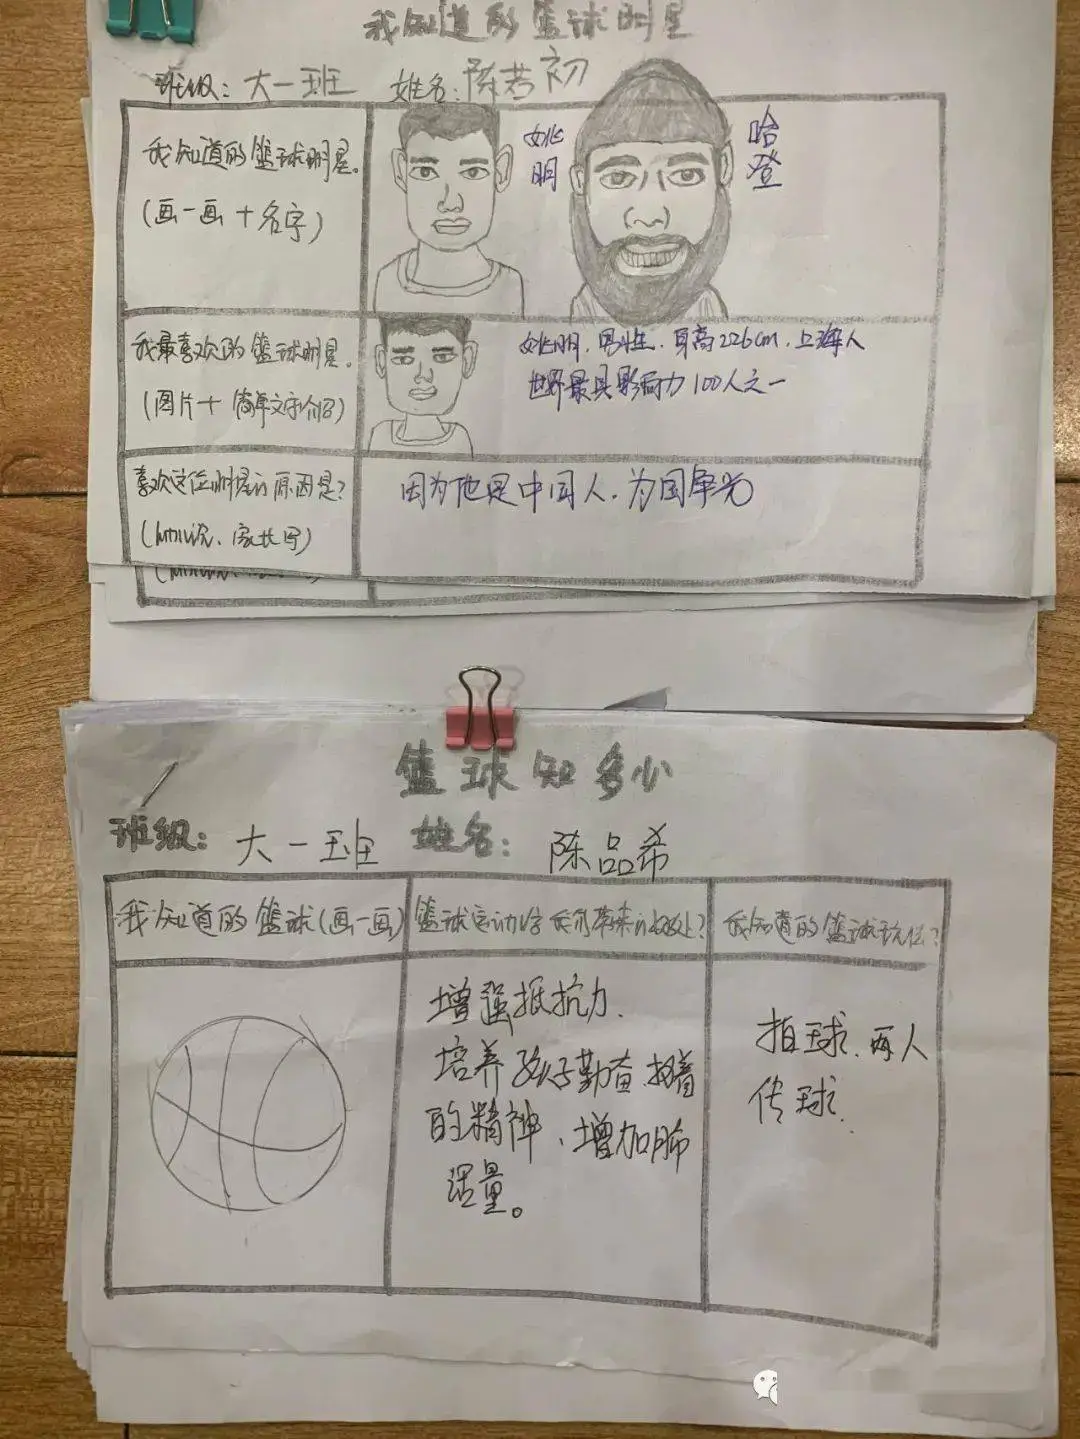 我知道的篮球明星
班级：大一班 姓名：陈若初
我知道的篮球明星。
(画一画＋名字)
姚明
哈登
我最喜欢的篮球明星。
(图片＋简单文字介绍)
姚明，男性．身高226cm．上海人
世界最具影响力100人之一
喜欢这位明星的原因是？
(幼儿说、家长写)
因为他是中国人．为国争光
篮球知多少
班级：大一班 姓名：陈品希
我知道的篮球(画一画)
篮球运动给我们带来的好处？
我知道的篮球玩法？
增强抵抗力．
培养孩子勤奋 拼着
的精神、增加肺
活量。
拍球．两人
传球．